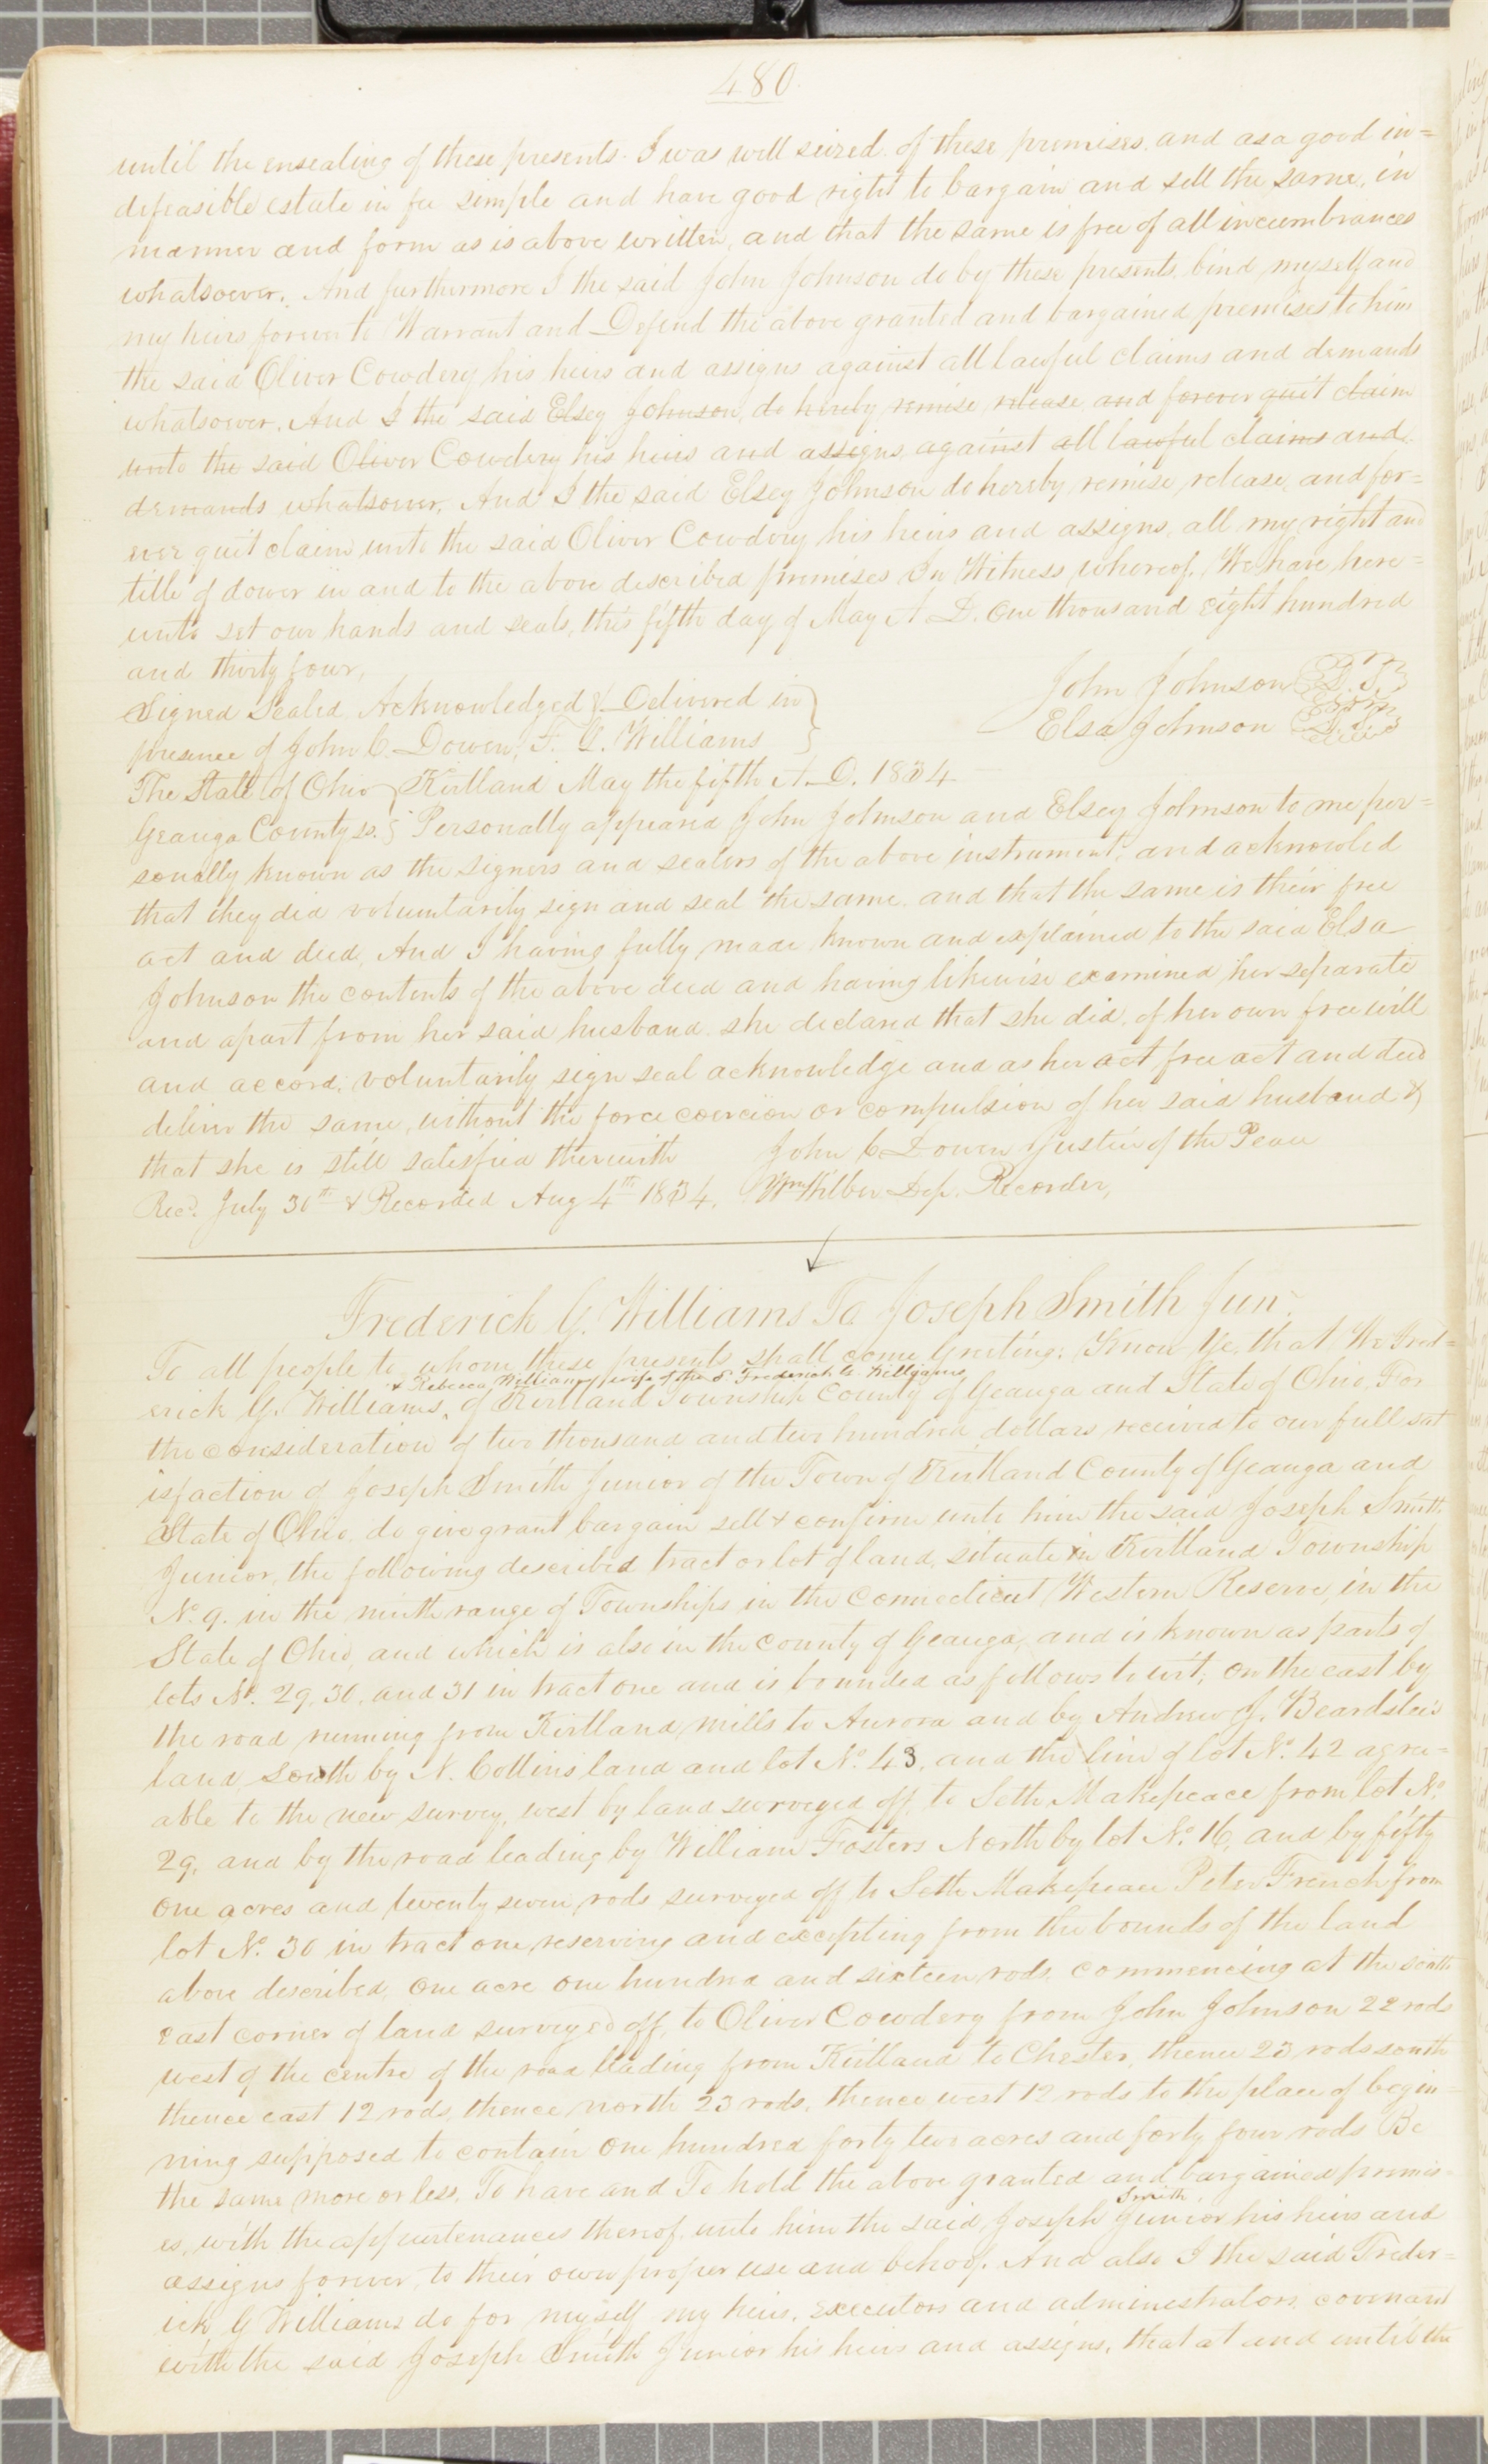 480
until the ensealing of these presents. I was well seized of these premises, and as a good in=
defeasible estate in fee simple and have good right to bargain and sell the same, in
manner and form as is above written, and that the same is free of all incumbrances
whatsoever. And furthermore I the said John Johnson do by these presents, bind myself and
my heirs forever to Warrant and Defend the above granted and bargained premises to him
the said Oliver Cowdery his heirs and assigns against all lawful claims and demands
whatsoever. And I the said Elsey Johnson, do hereby remise release and forever quit claim
unto the said Oliver Cowdery his heirs and assigns against all lawful claims and
demands whatsoever. And I the said Elsey Johnson do hereby remise, release, and for=
ever quit claim unto the said Oliver Cowdery his heirs and assigns, all my right and
title of dower in and to the above described premises In Witness whereof, We have here=
unto set our hands and seals, this fifth day of May A D. One thousand eight hundred
and thirty four,
John Johnson L.S.
Signed Sealed Acknowledged & Delivered in
Elsa Johnson L.S.
presence of John C. Dowen, F. G. Williams
The State of Ohio } Kirtland May the fifth A.D. 1834
Geauga County ss. } Personally appeared John Johnson and Elsey Johnson to me per=
sonally known as the signers and sealers of the above instrument, and acknowled
that they did voluntarily sign and seal the same, and that the same is their free
act and deed, And I having fully made known and explained to the said Elsa
Johnson the contents of the above deed and having likewise examined her separate
and apart from her said husband. she declared that she did, of her own free will
and accord, voluntarily sign seal acknowledge and as her act free act and deed
deliver the same, without the force coercion or compulsion of her said husband &
that she is still satisfied therewith John C Dowen Justice of the Peace
Recd. July 30th & Recorded Aug 4th 1834. Wm Wilber Dep. Recorder,
Frederick G. Williams To Joseph Smith Jun.
To all people to whom these presents shall come Greeting: Know Ye, that We Fred=
& Rebecca Williams, wife of the sd Frederick G. Williams,
erick G. Williams, of Kirtland Township County of Geauga and State of Ohio, For
the consideration of two thousand and two hundred dollars received to our full sat
isfaction of Joseph Smith Junior of the Town of Kirtland County of Geauga and
State of Ohio, do give grant bargain sell & confirm unto him the said Joseph Smith
Junior, the following described tract or lot of land, situate in Kirtland Township
No. 9. in the ninth range of Townships in the Connecticut Western Reserve, in the
State of Ohio, and which is also in the county of Geauga, and is known as parts of
lots No. 29, 30, and 31 in tract one and is bounded as follows to wit; on the east by
the road running from Kirtland mills to Aurora and by Andrew J. Beardslee's
land, South by N. Collins land and lot No. 43, and the line of lot No. 42 agree=
able to the new survey, west by land surveyed off, to Seth Makepeace from lot No.
29, and by the road leading by William Fosters North by lot No. 16, and by fifty
one acres and twenty seven rods surveyed off to Seth Makepeace Peter French from
lot No. 30 in tract one, reserving and excepting from the bounds of the land
above described, One acre one hundred and sixteen rods. commencing at the south
east corner of land surveyed off, to Oliver Cowdery from John Johnson 22 rods
west of the centre of the road leading from Kirtland to Chester, thence 23 rods south
thence east 12 rods, thence north 23 rods, thence west 12 rods to the place of begin=
ning supposed to contain One hundred forty two acres and forty four rods Be
the same more or less. To have and To hold the above granted and bargained premis=
Smith
es, with the appurtenances thereof, unto him the said, Joseph Junior his heirs and
assigns forever, to their own proper use and behoof. And also I the said Freder=
ick G Williams do for myself my heirs, executors and administrators, covenant
with the said Joseph Smith Junior his heirs and assigns, that at and until the